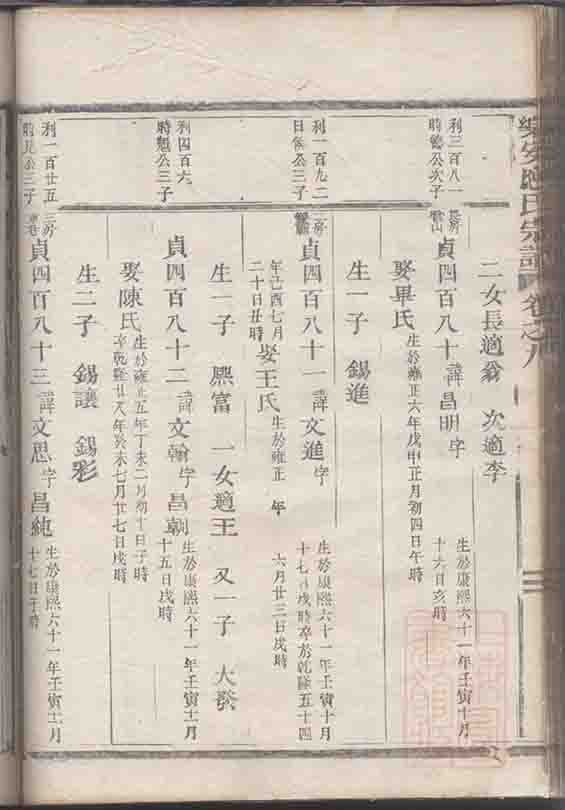 應氏宗譜 卷之八
二女長適翁 次適李
利三百八一
時德公次子
長房
貞四百八十 諱昌明字
生於康熙六十一年壬寅十月
十六日亥時
娶畢氏
生於雍正六年戊申正月初四日午時
生一子 錫進
利一百九二
日俟公三子
二房
貞四百八十一 諱文進字
生於康熙六十一年壬寅十月
十七日戌時卒於乾隆五十四
年己酉七月
二十日丑時
娶王氏
生於雍正 年
六月廿三日戌時
生一子 熙富 一女適王 又一子 大發
利四百六
時魁公三子
貞四百八十二 諱文翰字昌朝
生於康熙六十一年壬寅十一月
十五日戌時
娶陳氏
生於雍正五年丁未二月初十日子時
卒乾隆廿八年癸未七月廿七日戌時
生二子 錫讓 錫彩
利一百廿五
時見公三子
三房
貞四百八十三 諱文思字昌純
生於康熙六十一年壬寅十一月
十七日子時